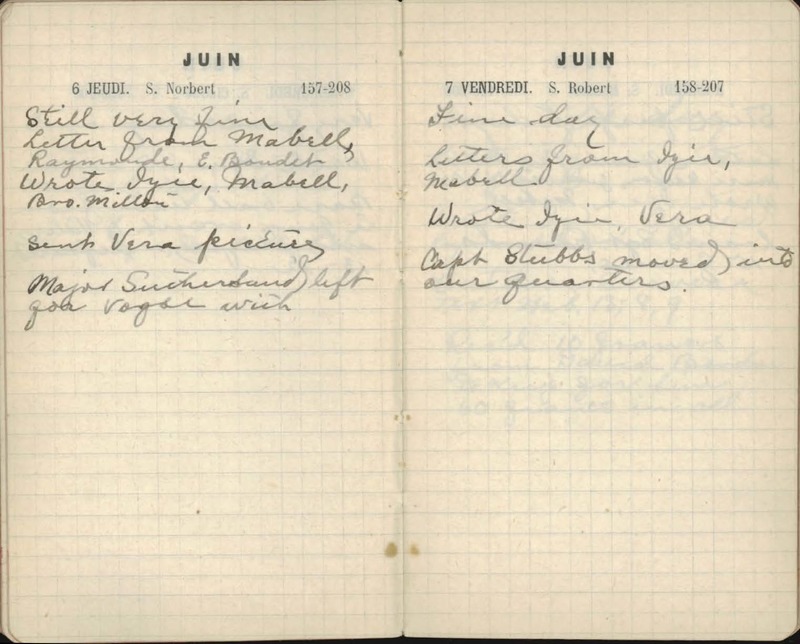 JUIN
6 JEUDI. S. Norbert 157-208
Still very fine
Letter from Mabell,
Raymonde, E. Boudet
Wrote Izie, Mabell,
Bro. Milton
sent Vera picture
Major Sutherland left
for with
JUIN
7 VENDREDI. S. Robert 158-207
Fine day
Letters from Izie,
Mabell
Wrote Izie, Vera
Capt Stubbs moved into
our quarters.